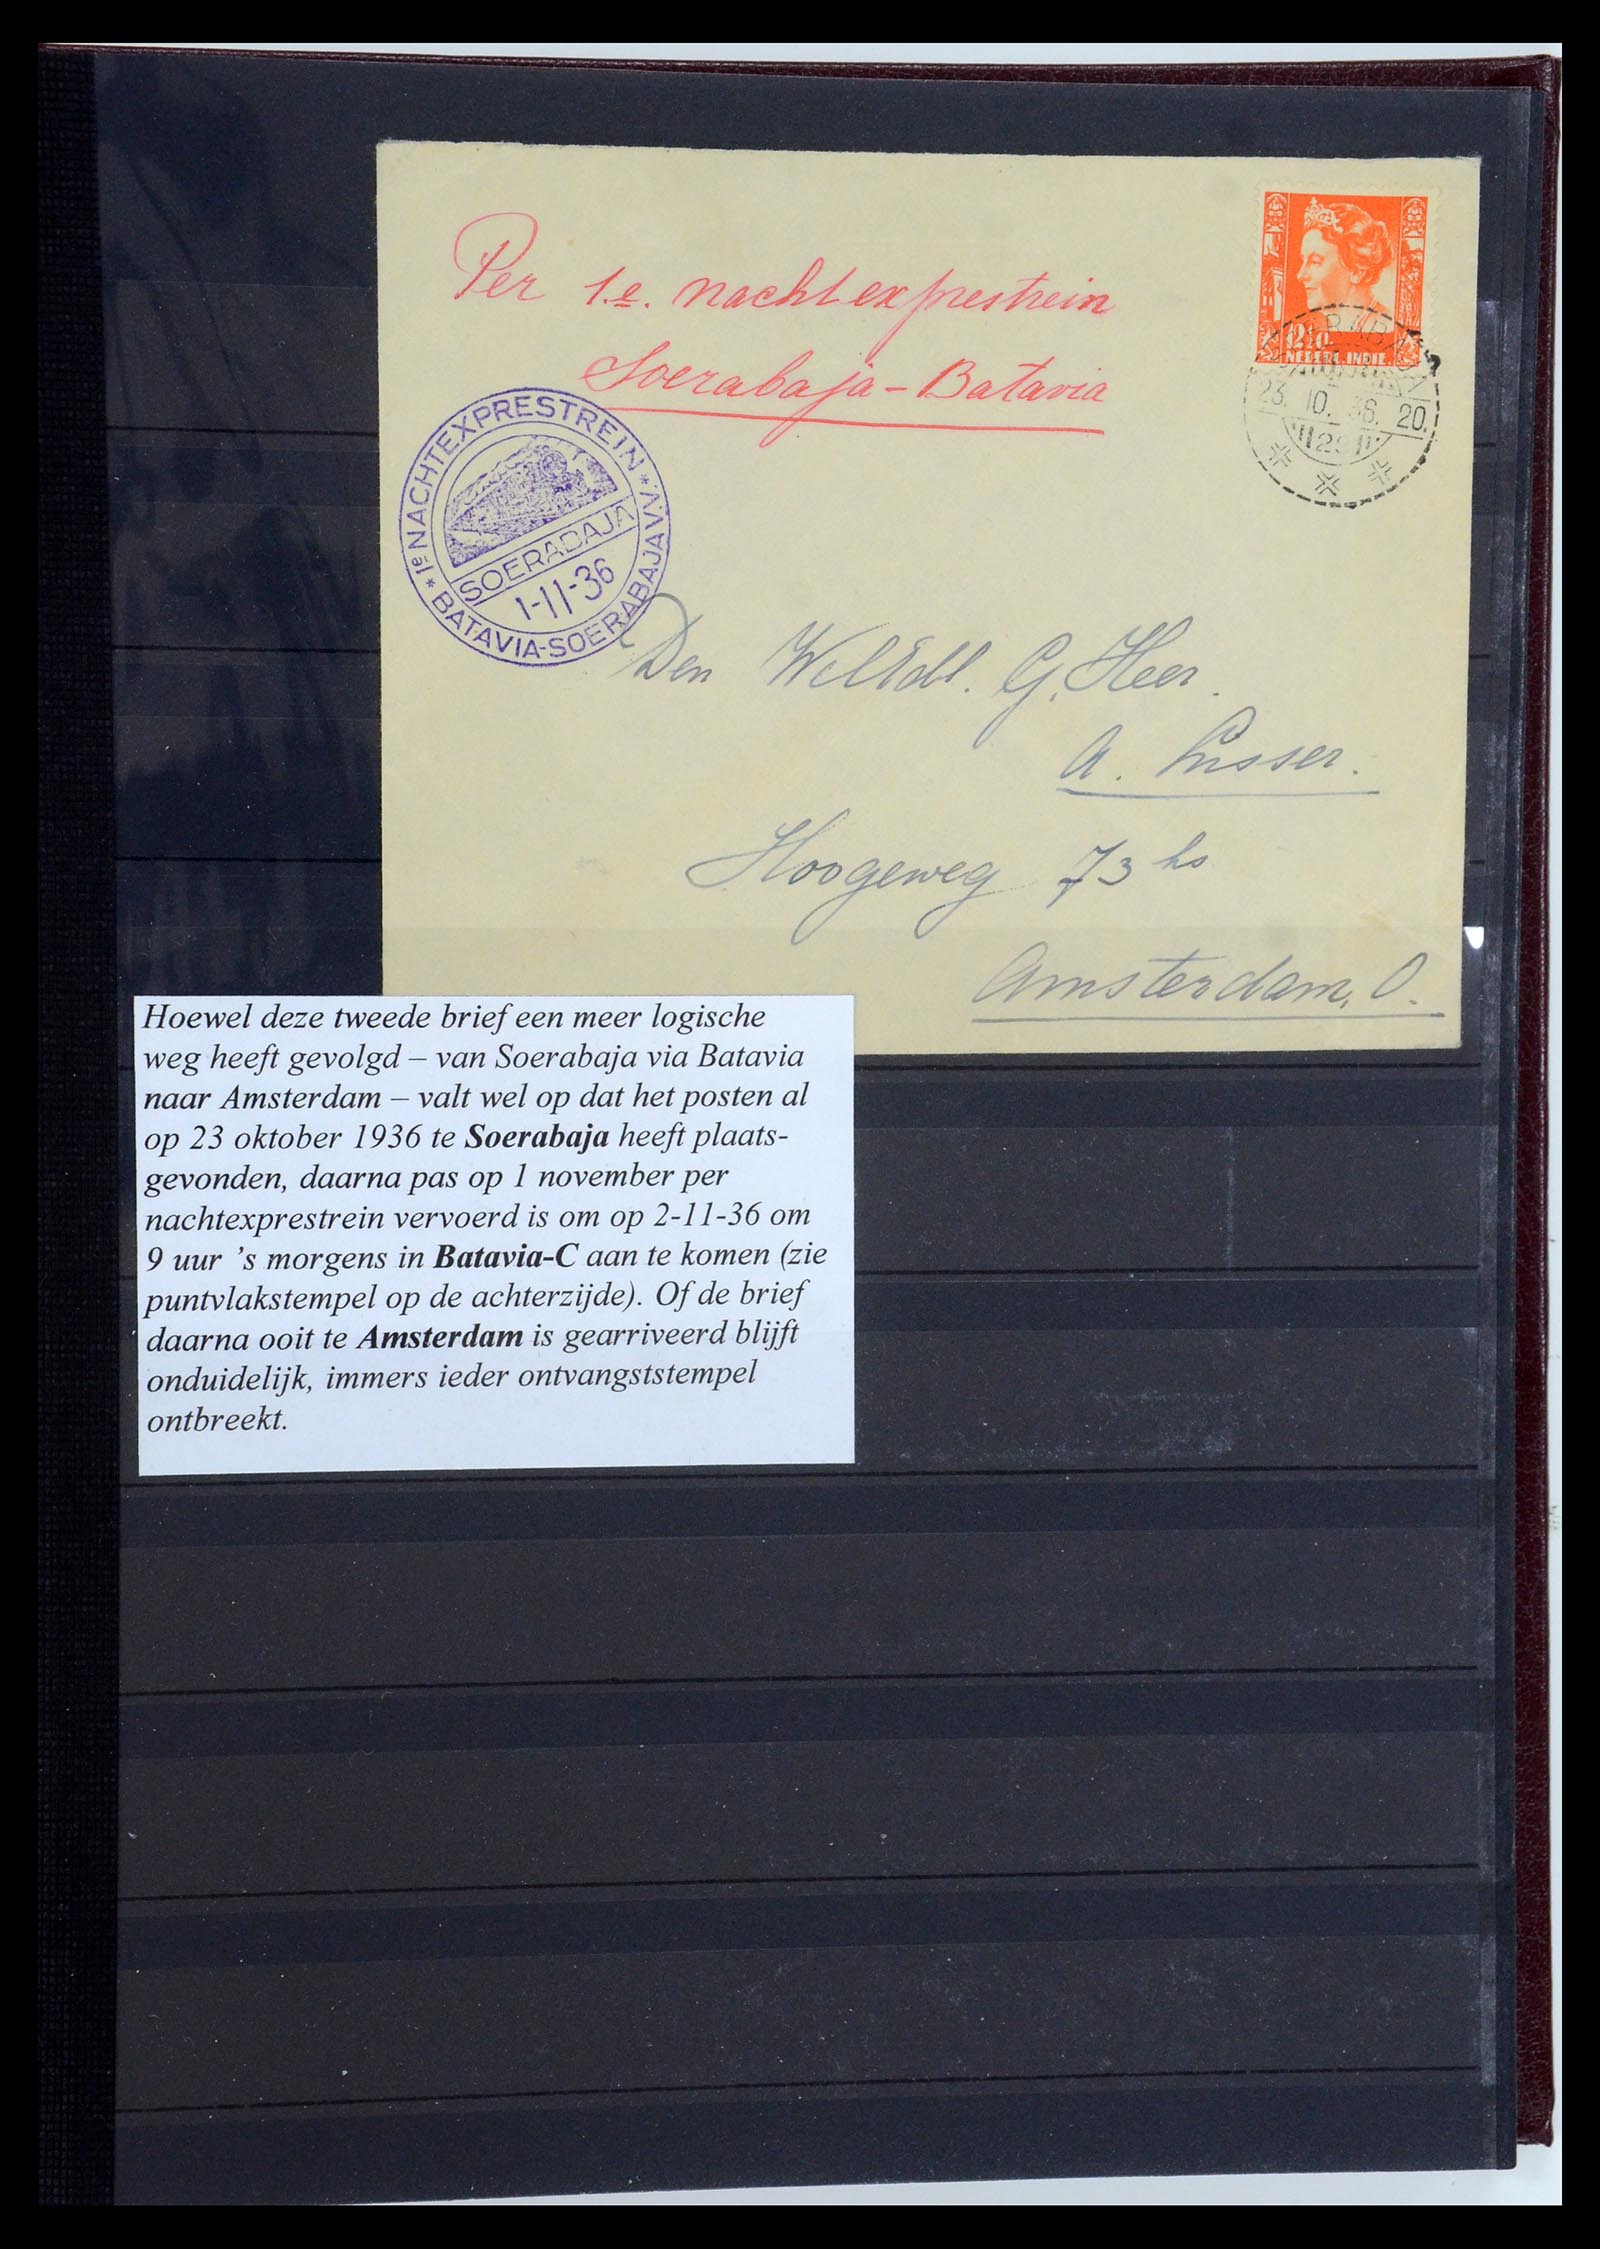 Per 1.e. nachtexprestrein
Soerabaja - Batavia
12½ ct
NEDERL. INDIE
SOERABAJA
23. 10. 36. 20.
* 1ste NACHTEXPRESTREIN *
BATAVIA-SOERABAJA V.V.
SOERABAJA
1-11-36
Den WelEdl. G. Heer.
A. Lusser.
Hoogeweg 73 hs
Amsterdam. O.
Hoewel deze tweede brief een meer logische
weg heeft gevolgd – van Soerabaja via Batavia
naar Amsterdam – valt wel op dat het posten al
op 23 oktober 1936 te Soerabaja heeft plaats-
gevonden, daarna pas op 1 november per
nachtexprestrein vervoerd is om op 2-11-36 om
9 uur ’s morgens in Batavia-C aan te komen (zie
puntvlakstempel op de achterzijde). Of de brief
daarna ooit te Amsterdam is gearriveerd blijft
onduidelijk, immers ieder ontvangststempel
ontbreekt.